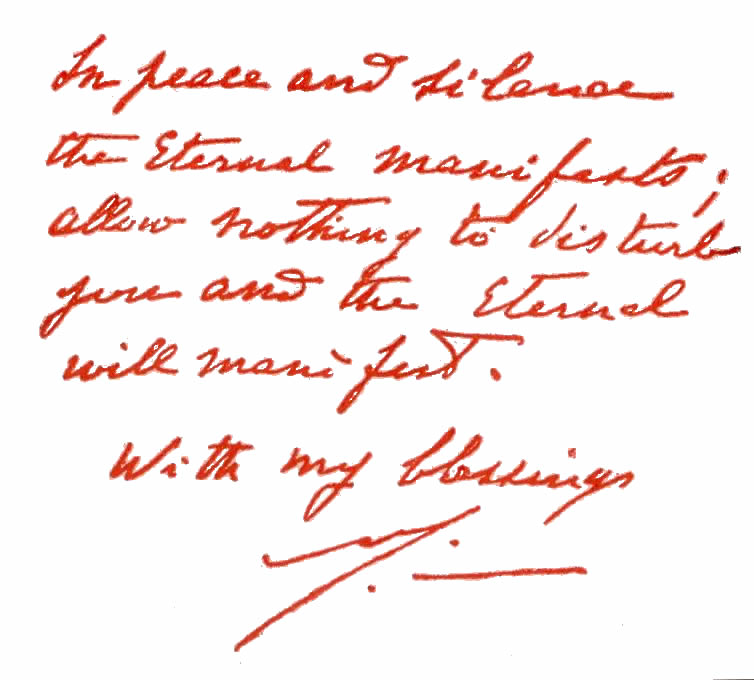 In peace and silence
the Eternal manifests;
allow nothing to disturb
you and the Eternal
will manifest.
With my blessings